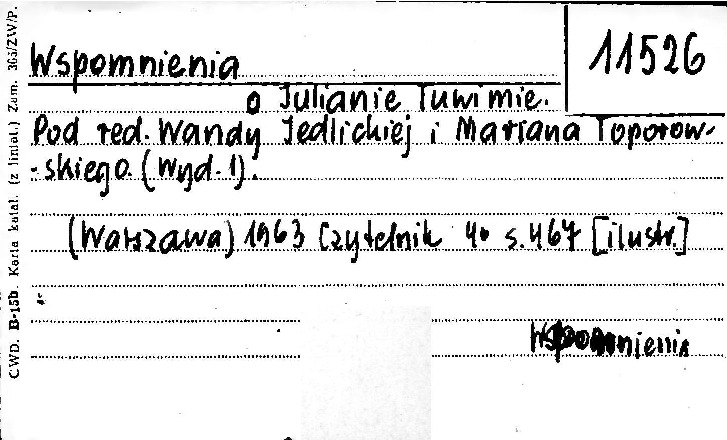 Wspomnienia
11526
o Julianie Tuwimie.
Pod red. Wandy Jedlickiej i Mariana Toporow-
-skiego. (Wyd. 1).
(Warszawa) 1963 Czytelnik 4° s. 467 [ilustr.]
Wspomnienia
CWD. B-15b. Karta katal. (z liniat.) Zam. 363/ZW/P.